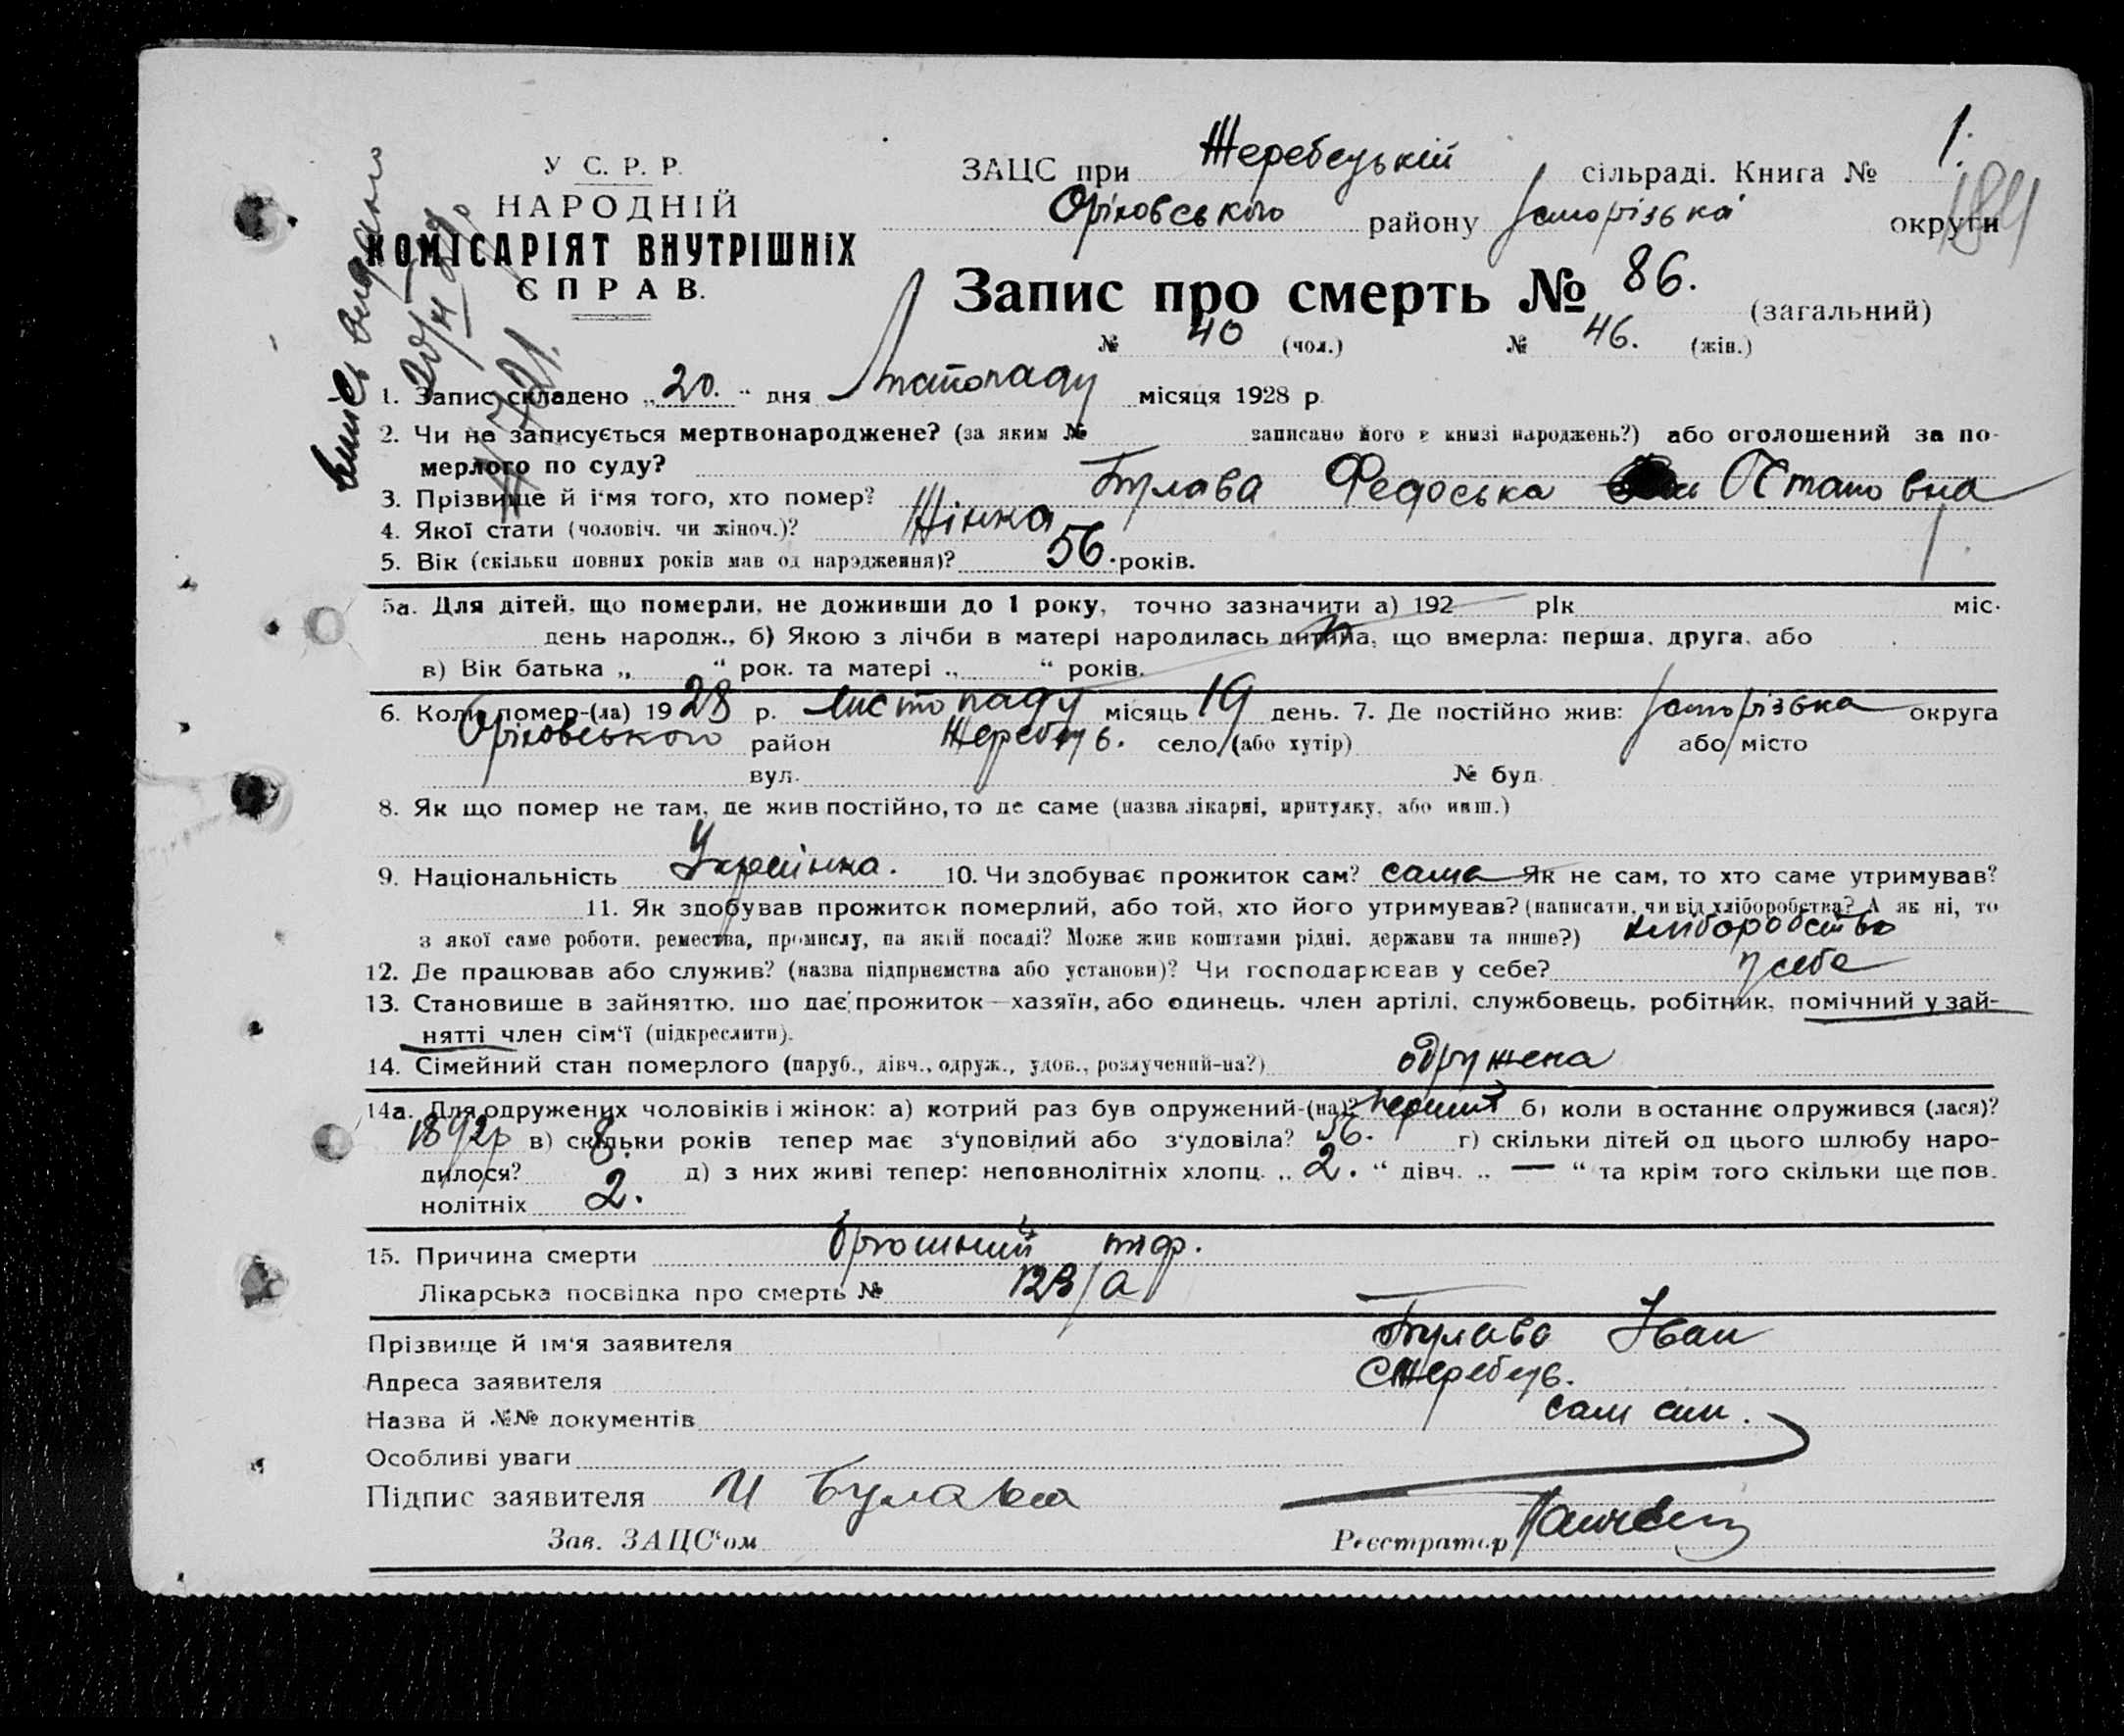 У С. Р. Р.
НАРОДНІЙ
КОМІСАРІЯТ ВНУТРІШНІХ
СПРАВ.
ЗАЦС при Жеребецькій сільраді. Книга № 1.
184
Оріховського району Запорізької округи
Запис про смерть № 86. (загальний)
№ 40 (чол.) № 46. (жін.)
видано
1. Запис складено „20.“ дня Листопаду місяця 1928 р.
2. Чи не записується мертвонароджене? (за яким № записано його в книзі народжень?) або оголошений за по-
мерлого по суду?
3. Прізвище й і'мя того, хто помер? Булава Федоська Остаповна
4. Якої стати (чоловіч. чи жіноч.)? Жінка
5. Вік (скільки повних років мав од народження)? 56. років.
5а. Для дітей, що померли, не доживши до 1 року, точно зазначити а) 192 рік міс.
день народж., б) Якою з лічби в матері народилась дитина, що вмерла: перша, друга, або
в) Вік батька „ “ рок. та матері „ “ років.
6. Коли помер-(ла) 1928 р. Листопаду місяць 19 день. 7. Де постійно жив: Запорізька округа
Оріховського район Жеребець. село (або хутір) або місто
вул. № буд.
8. Як що помер не там, де жив постійно, то де саме (назва лікарні, притулку, або инш.)
9. Національність Українка. 10. Чи здобуває прожиток сам? сама Як не сам, то хто саме утримував?
11. Як здобував прожиток померлий, або той, хто його утримував? (написати, чи від хліборобства? А як ні, то
з якої саме роботи, ремества, промислу, на якій посаді? Може жив коштами рідні, держави та инше?) хліборобство
12. Де працював або служив? (назва підприємства або установи)? Чи господарював у себе? у себе
13. Становище в зайняттю, що дає прожиток—хазяїн, або одинець, член артілі, службовець, робітник, помічний у зай-
нятті член сім'ї (підкреслити).
14. Сімейний стан померлого (паруб., дівч., одруж., удов., розлучений-на?) одружена
14а. Для одружених чоловіків і жінок: а) котрий раз був одружений-(на)? перший б) коли востаннє одружився (лася)?
1892р в) скільки років тепер має з'уповілий або з'удовіла? 56. г) скільки дітей од цього шлюбу наро-
дилося? 8. д) з них живі тепер: неповнолітніх хлопц. „2.“ дівч. „—“ та крім того скільки ще пов.
нолітніх 2.
15. Причина смерти брюшний тиф.
Лікарська посвідка про смерть № 123/а
Прізвище й ім'я заявителя Булава Іван
Адреса заявителя С Жеребець.
Назва й №№ документів
Особливі уваги
Підпис заявителя И Булава
Зав. ЗАЦС'ом Реєстратор